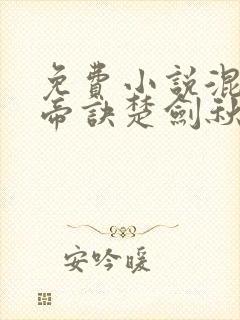 免費小說混
帝訣楚劍秋
安吟暖